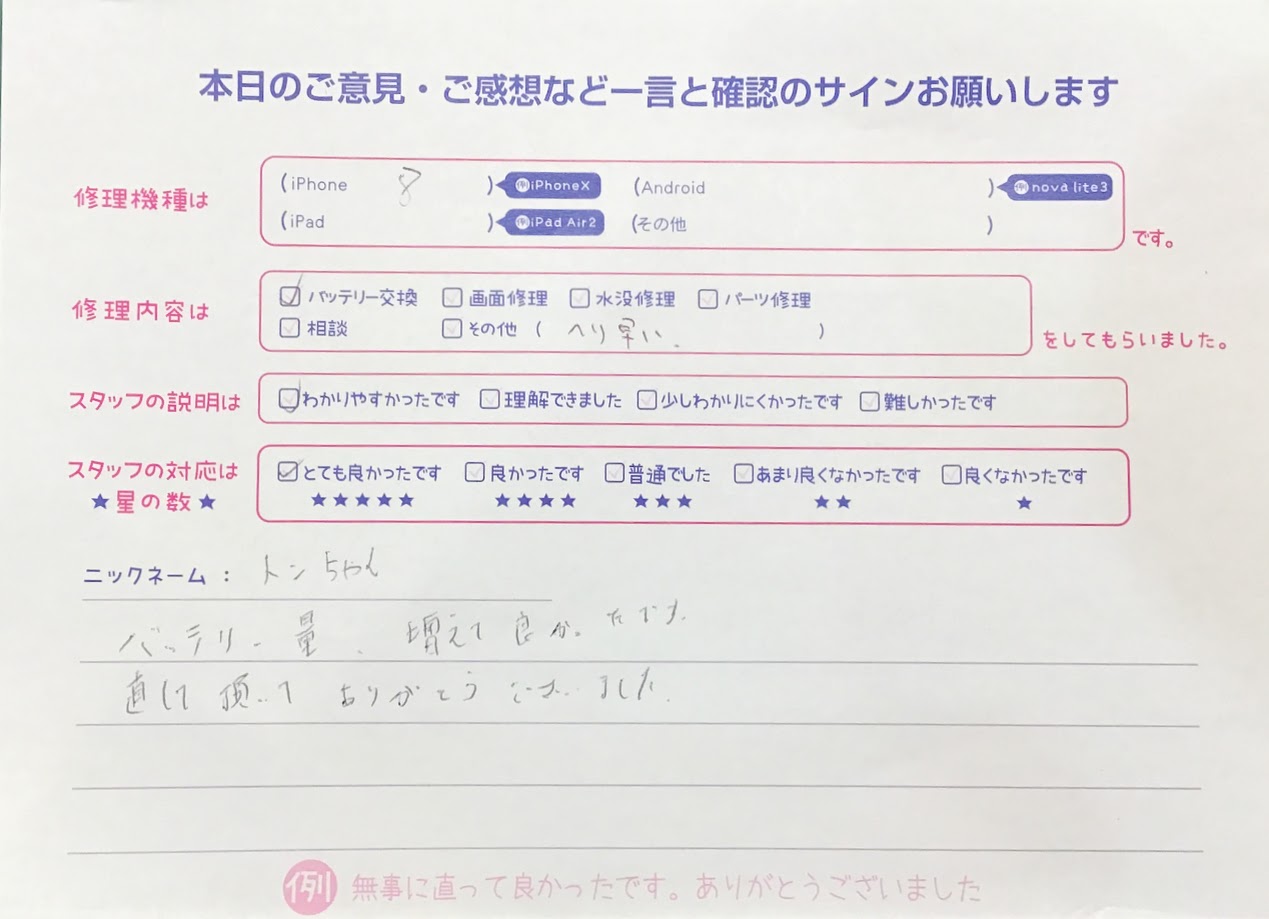 本日のご意見・ご感想など一言と確認のサインお願いします
修理機種は (iPhone 8 ) 例iPhoneX (Android ) 例nova lite3
(iPad ) 例iPad Air2 (その他 ) です。
修理内容は バッテリー交換 画面修理 水没修理 パーツ修理
相談 その他 ( へり早い. ) をしてもらいました。
スタッフの説明は わかりやすかったです 理解できました 少しわかりにくかったです 難しかったです
スタッフの対応は とても良かったです 良かったです 普通でした あまり良くなかったです 良くなかったです
★星の数★ ★★★★★ ★★★★ ★★★ ★★ ★
ニックネーム: トンちゃん
バッテリー量、増えて良かったです。
直して頂いてありがとうございました。
例 無事に直って良かったです。ありがとうございました